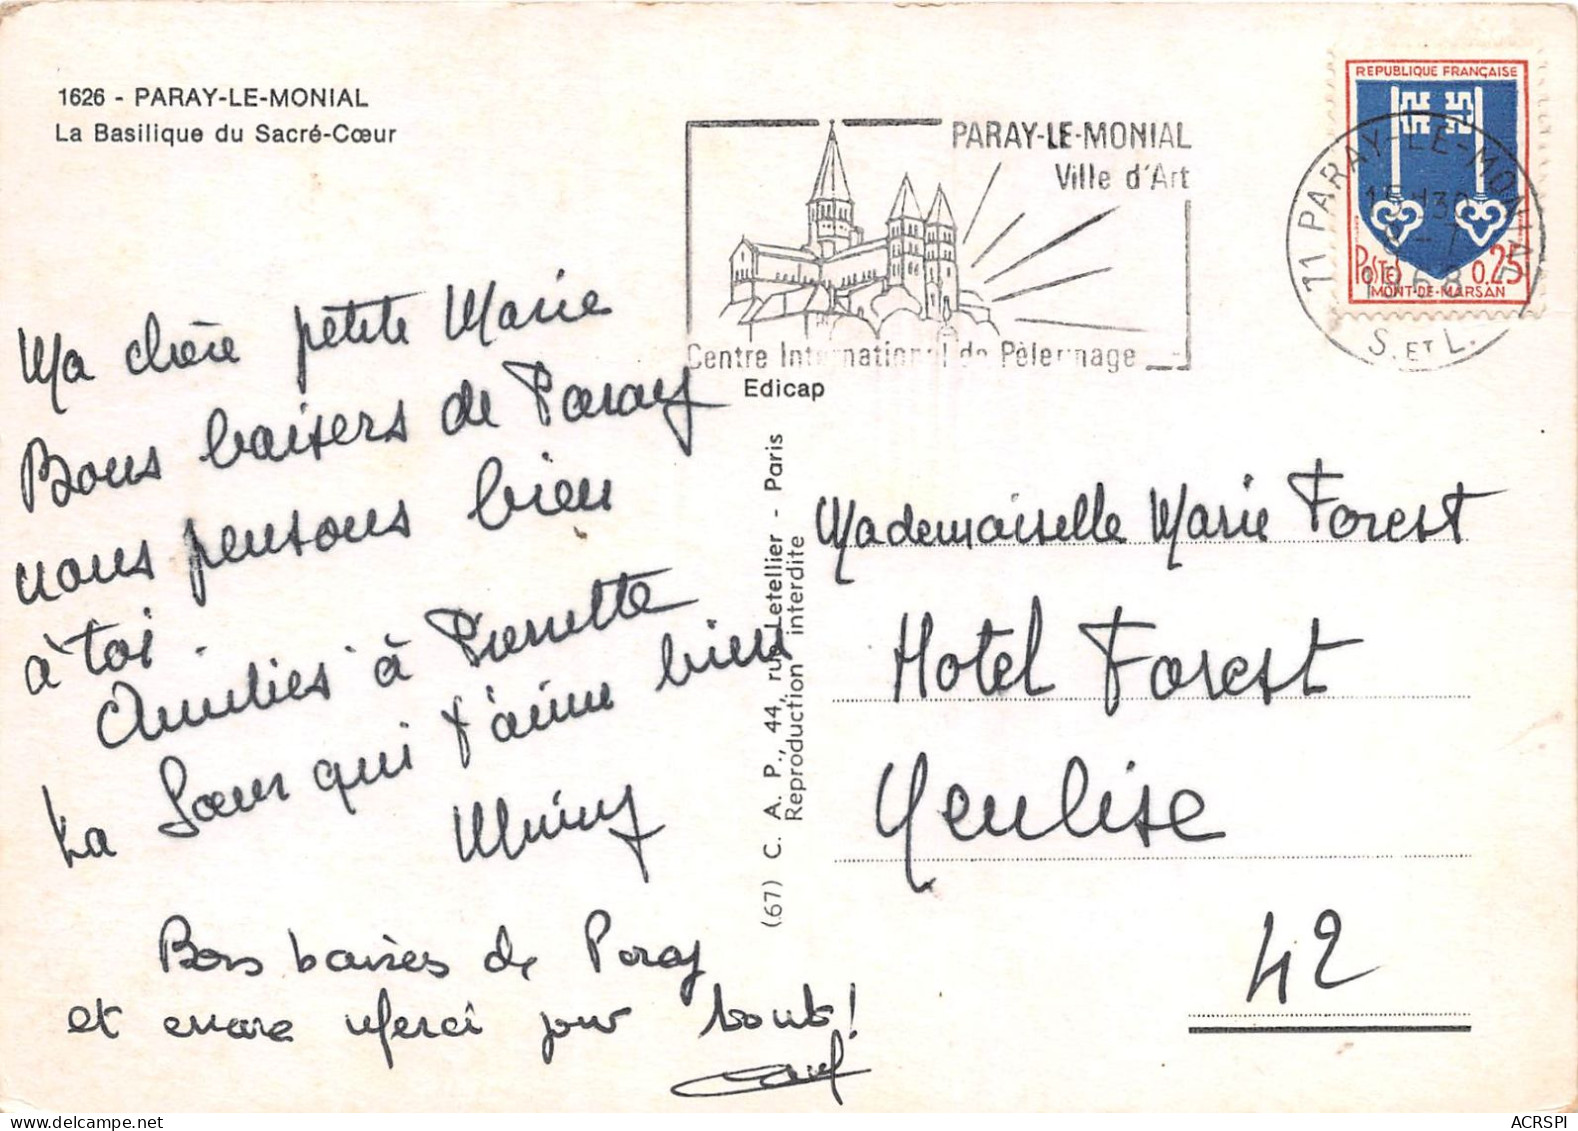 1626 - PARAY-LE-MONIAL
La Basilique du Sacré-Cœur
PARAY-LE-MONIAL
Ville d'Art
Centre International de Pèlerinage
REPUBLIQUE FRANÇAISE
POSTES 0.25
MONT-DE-MARSAN
11 PARAY-LE-MONIAL
S. ET L.
Edicap
Ma chère petite Marie
Bons baisers de Paray
nous pensons bien
à toi.
Amitiés à Pierrette
ta Sœur qui t'aime bien
Bons baisers de Paray
et encore Merci pour tout!
(67) C. A. P., 44, rue Letellier - Paris
Reproduction interdite
Mademoiselle Marie Forest
Hotel Forest
42
ACRSPI